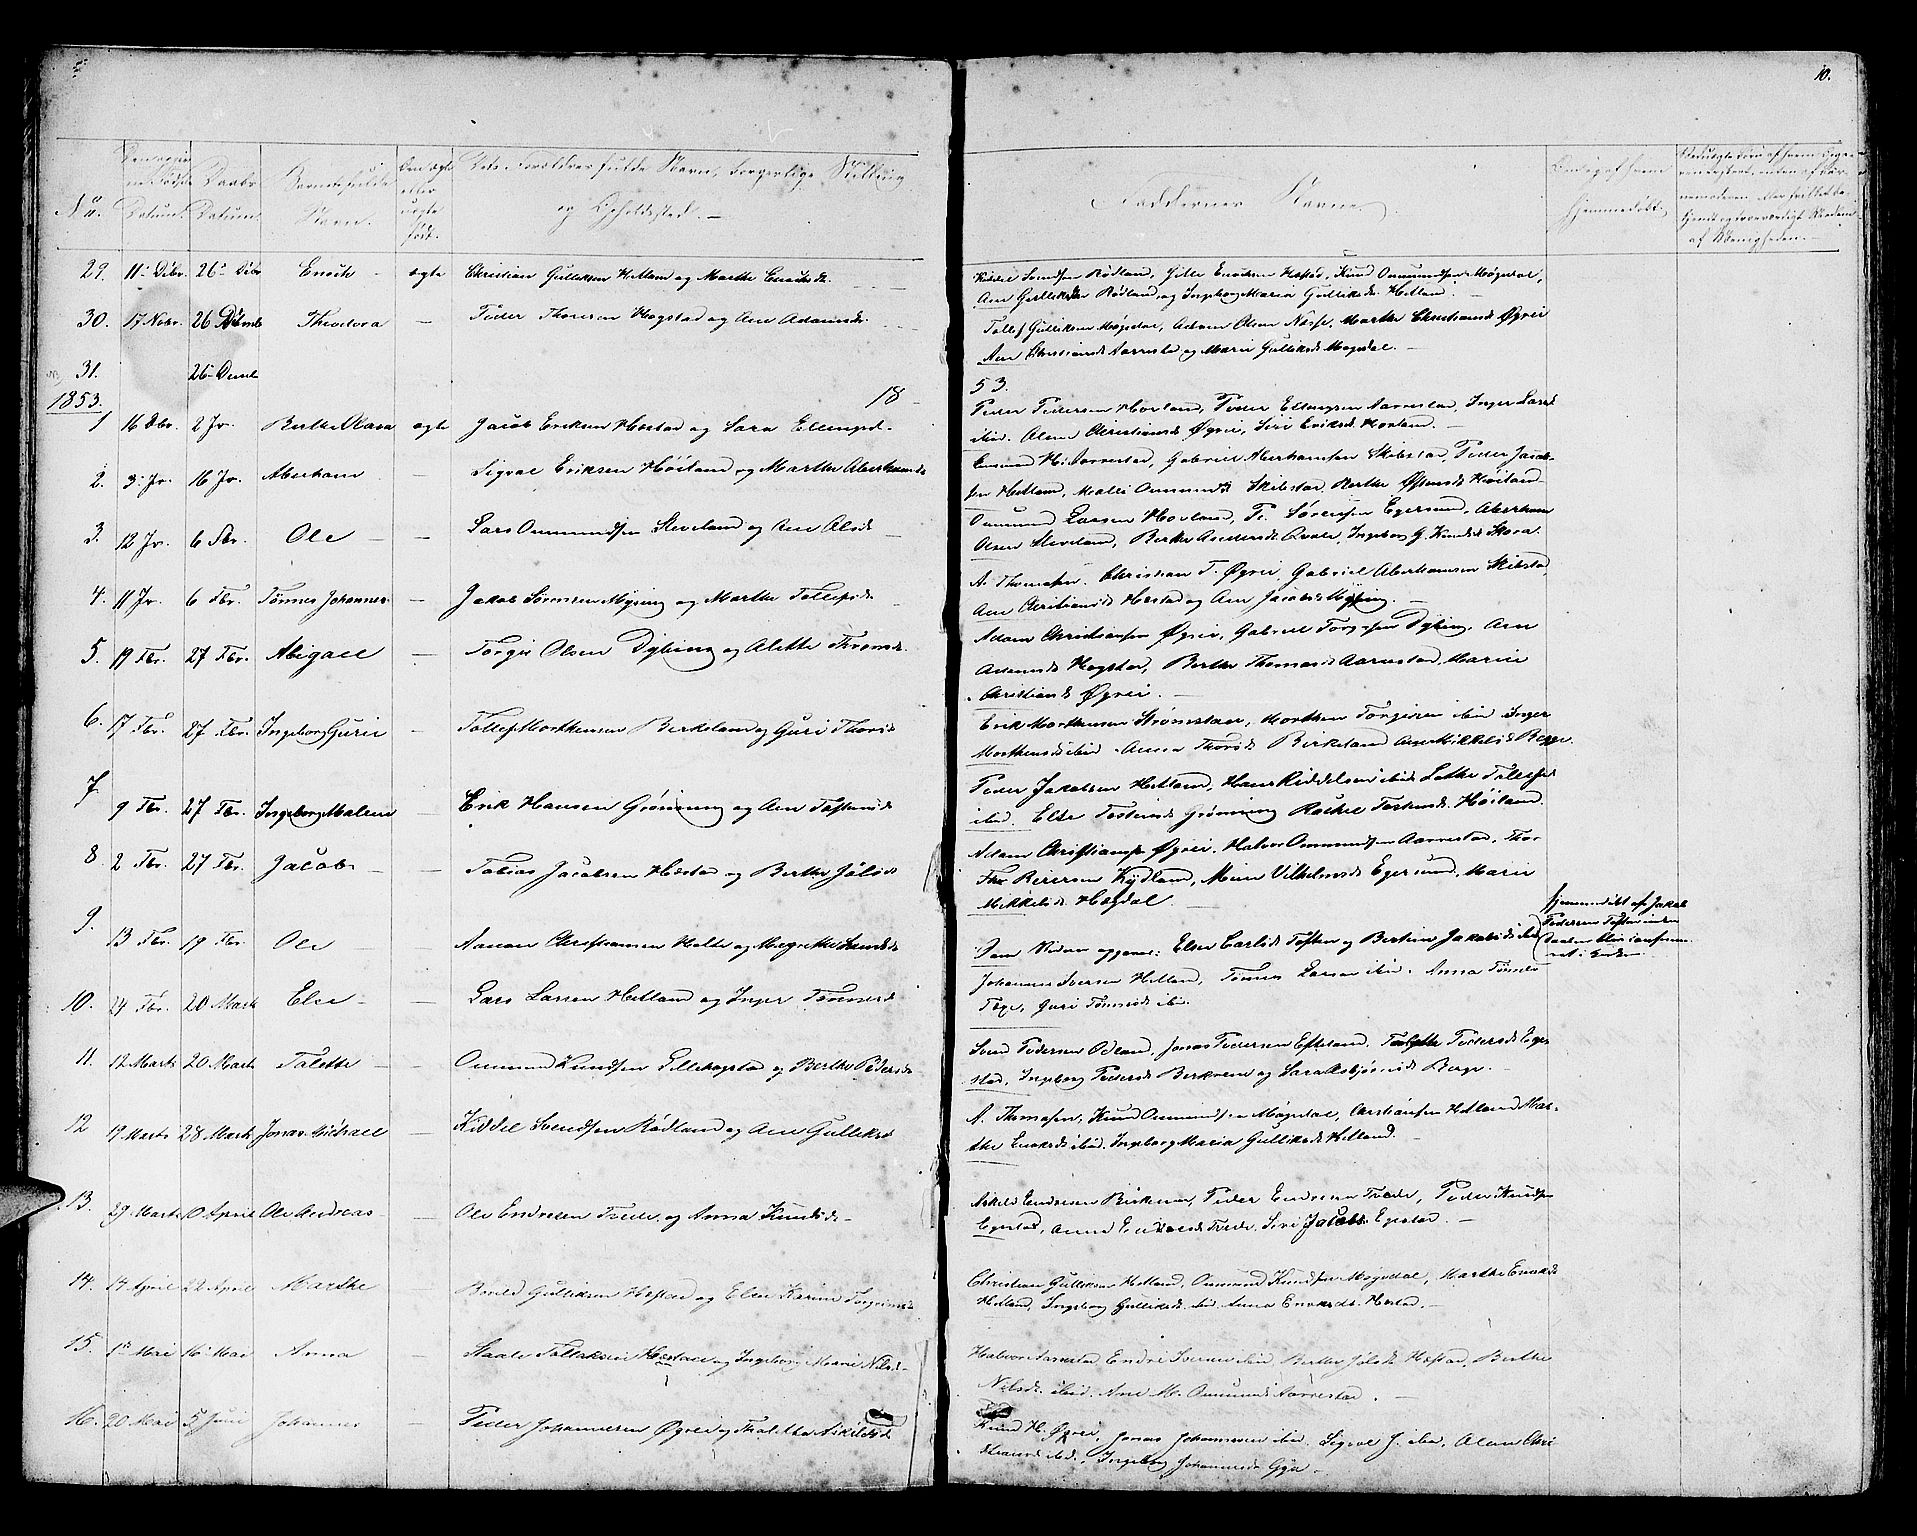 10.
No. Datum. Daabs Datum. Barnets fulde Navn. Om ægte eller uægte født. Dets Forældres fulde Navn, borgerlige Stilling og Opholdssted. — Faddernes Navne.
29. 11 Dbr. 26 Dbr Enoch — ægte Christian Gulliksen Hetland og Marthe Enoksdr.
Kiddel Svendsen Rødland, Gitle Enoksen Hæstad, Knud Ommundsen Møgedal,
Ane Gulliksdr Rødland, og Ingeborg Maria Gulliksdr. Hetland. —
30. 17 Nobr. 26 Decmb Theodora — Peder Thorsen Hogstad og Ane Adamsdr.
Tollef Gulliksen Møgedal, Adam Olsen Næsse, Marthe Christiansd. Øgrei
Ane Christiansd. Aarrestad og Marie Gulliksd. Mogedal. —
31. 26 Decmb
1853. 18 53.
1 16 Dbr. 2 Jr. Berthe Olava ægte Jacob Eriksen Hæstad og Sara Ellingsd.
Peder Pedersen Hovland, Peder Ellingsen Aarrestad, Inger Larsd
ibid. Alene Christiansd. Øgrei, Siri Eriksd. Hovland. —
2. 3 Jr. 16 Jr. Aberham — Sigval Eriksen Höiland og Marthe Aberhamsd.
Aarrestad, Gabriel Aberhamsen Skibstad, Peder Jacob-
sen Hetland, Malli Ommundsd. Skibstad, Berthe Østensd. Höiland
3. 12 Jr. 6 Fbr. Ole — Lars Ommundsen Steveland og Ane Olsd.
Ommund Larsen Hovland, P. Sørensen Egersund, Aberham
Olsen Steveland, Berthe Andersd. Qvale, Ingeborg G. Knudsd. Skora.
4. 11 Jr. 6 Fbr. Tönnes Johannes — Jakob Sörensen Mysing og Marthe Tollefsd.
A. Thomasen. Christian T. Øgrei, Gabriel Aberhamsen Skibsta,
Ane Christiansd. Hæstad og Ane Jacobsd. Mysing. —
5. 19 Fbr. 27 Fbr. Abigael — Torgir Olsen Dybing og Alette Thronsd.
Adam Christiansen Øgrei, Gabriel Torgirsen Dybing, Ane
Adamsd. Hogstad, Berthe Thomasd. Aarrestad, Marie
Christiansd. Øgrei. —
6. 17 Fbr. 27 Fbr. Ingeborg Gurie — Tollef Morthensen Birkeland og Guri Thorsd.
Erik Morthensen Strømstad, Morthen Torgirsen ibid. Inger
Morthensd. ibid. Anna Thorsd. Birkeland Ane Mikkelsd. Bergge.
7. 9 Fbr. 27 Fbr. Ingeborg Malene — Erik Hansen Grönning og Ane Tostensd.
Peder Jakobsen Hetland, Hans Kiddelsen ibid. Lethe Tollefsd.
ibid. Else Tostensd. Grönning Rachel Tostensd. Höiland.
8. 2 Fbr. 27 Fbr. Jacob — Tobias Jacobsen Hæstad og Berthe Jölsd.
Adam Christiansen Øgrei. Halvor Ommundsen Aarrestad, Thor
Reiersen Kydland, Mine Vilhelmsd. Egersund, Marie
Mikkelsd. Hegdal. —
9. 13 Fbr. 19 Fbr. Ole — Aanon Christiansen Holte og Megrethe Svendsd.
Elen Carlsd. Toften og Bertine Jakobsd. ibid.
hjemmedöbt af Jakob
Pedersen Toften
10. 24 Fbr. 20 Marts Else — Lars Larsen Hetland og Inger Tönnesd.
Johannes Iversen Hetland, Tönnes Larsen ibid. Anna Tönnesd.
Guri Tönnesd. ibid.
11. 12 Marts 20 Marts Talette — Ommund Knudsen Lillehogstad og Berthe Pedersd.
Svend Pedersen Odland, Jonas Pedersen Efteland. Pedersd. Eges-
stad, Ingeborg Pedersd. Birkrem og Sara Asbjörnsd. Berge. —
12 19 Marts 28 Marts Jonas Michael — Kiddel Svendsen Rødland og Ane Gulliksd.
A. Thomasen, Knud Ommundsen Møgedal, Christiansen Hetland Mar-
the Enoksd. ibid. Ingeborg Maria Gulliksd. Hetland. —
13. 29 Marts 10 April Ole Andreas — Ole Endresen Tvede og Anna Knudsd. —
Askild Endresen Birkrem, Peder Endresen Tvede, Peder Knudsen
Egestad, Anna Endresd. Tvede. Siri Jacobsd. Egestad. —
14. 14 April 22 April Marthe — Gulliksen Hæstad og Elen Karine Torgrimsd.
Christian Gulliksen Hetland, Ommund Knudsen Møgedal, Marthe Enoksd.
Hetland, Ingeborg Gulliksd. ibid. Anna Enoksd. Hæstad. —
15. 1 Mai 16 Mai Anna — Staale Tollaksen Hæstad og Ingeborg Marie Nilsd. —
Halvor Aarrestad, Endre Iversen ibid. Berthe Jölsd. Hæstad, Berthe
Nilsd. ibid. Ane M. Ommundsd. Aarrestad. —
16. 20 Mai 5 Juni Johannes — Peder Johannesen Øgrei og Thalette Askildsd.
Knud H. Øgrei, Jonas Johannesen ibid. Sigval J. ibid, Alene Chri-
stiansd. ibid., Ingeborg Johannesd. Gya —